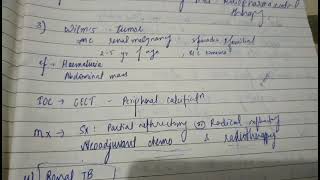 therapy
3) Wilm's Tumor
MC renal malignancy - sporadic > familial
2-5 yr of age
c/f → Haematuria
Abdominal mass
IOC → CECT - Peripheral calcificatn
Mx → Sx: Partial nephrectomy (or) Radical nephrectomy
Neoadjuvant chemo & radiotherapy
4) Renal TB